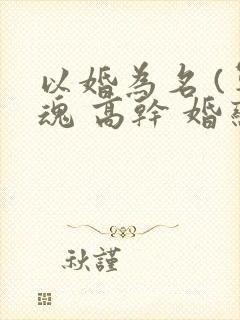 以婚為名(
魂 高幹 婚
秋謹